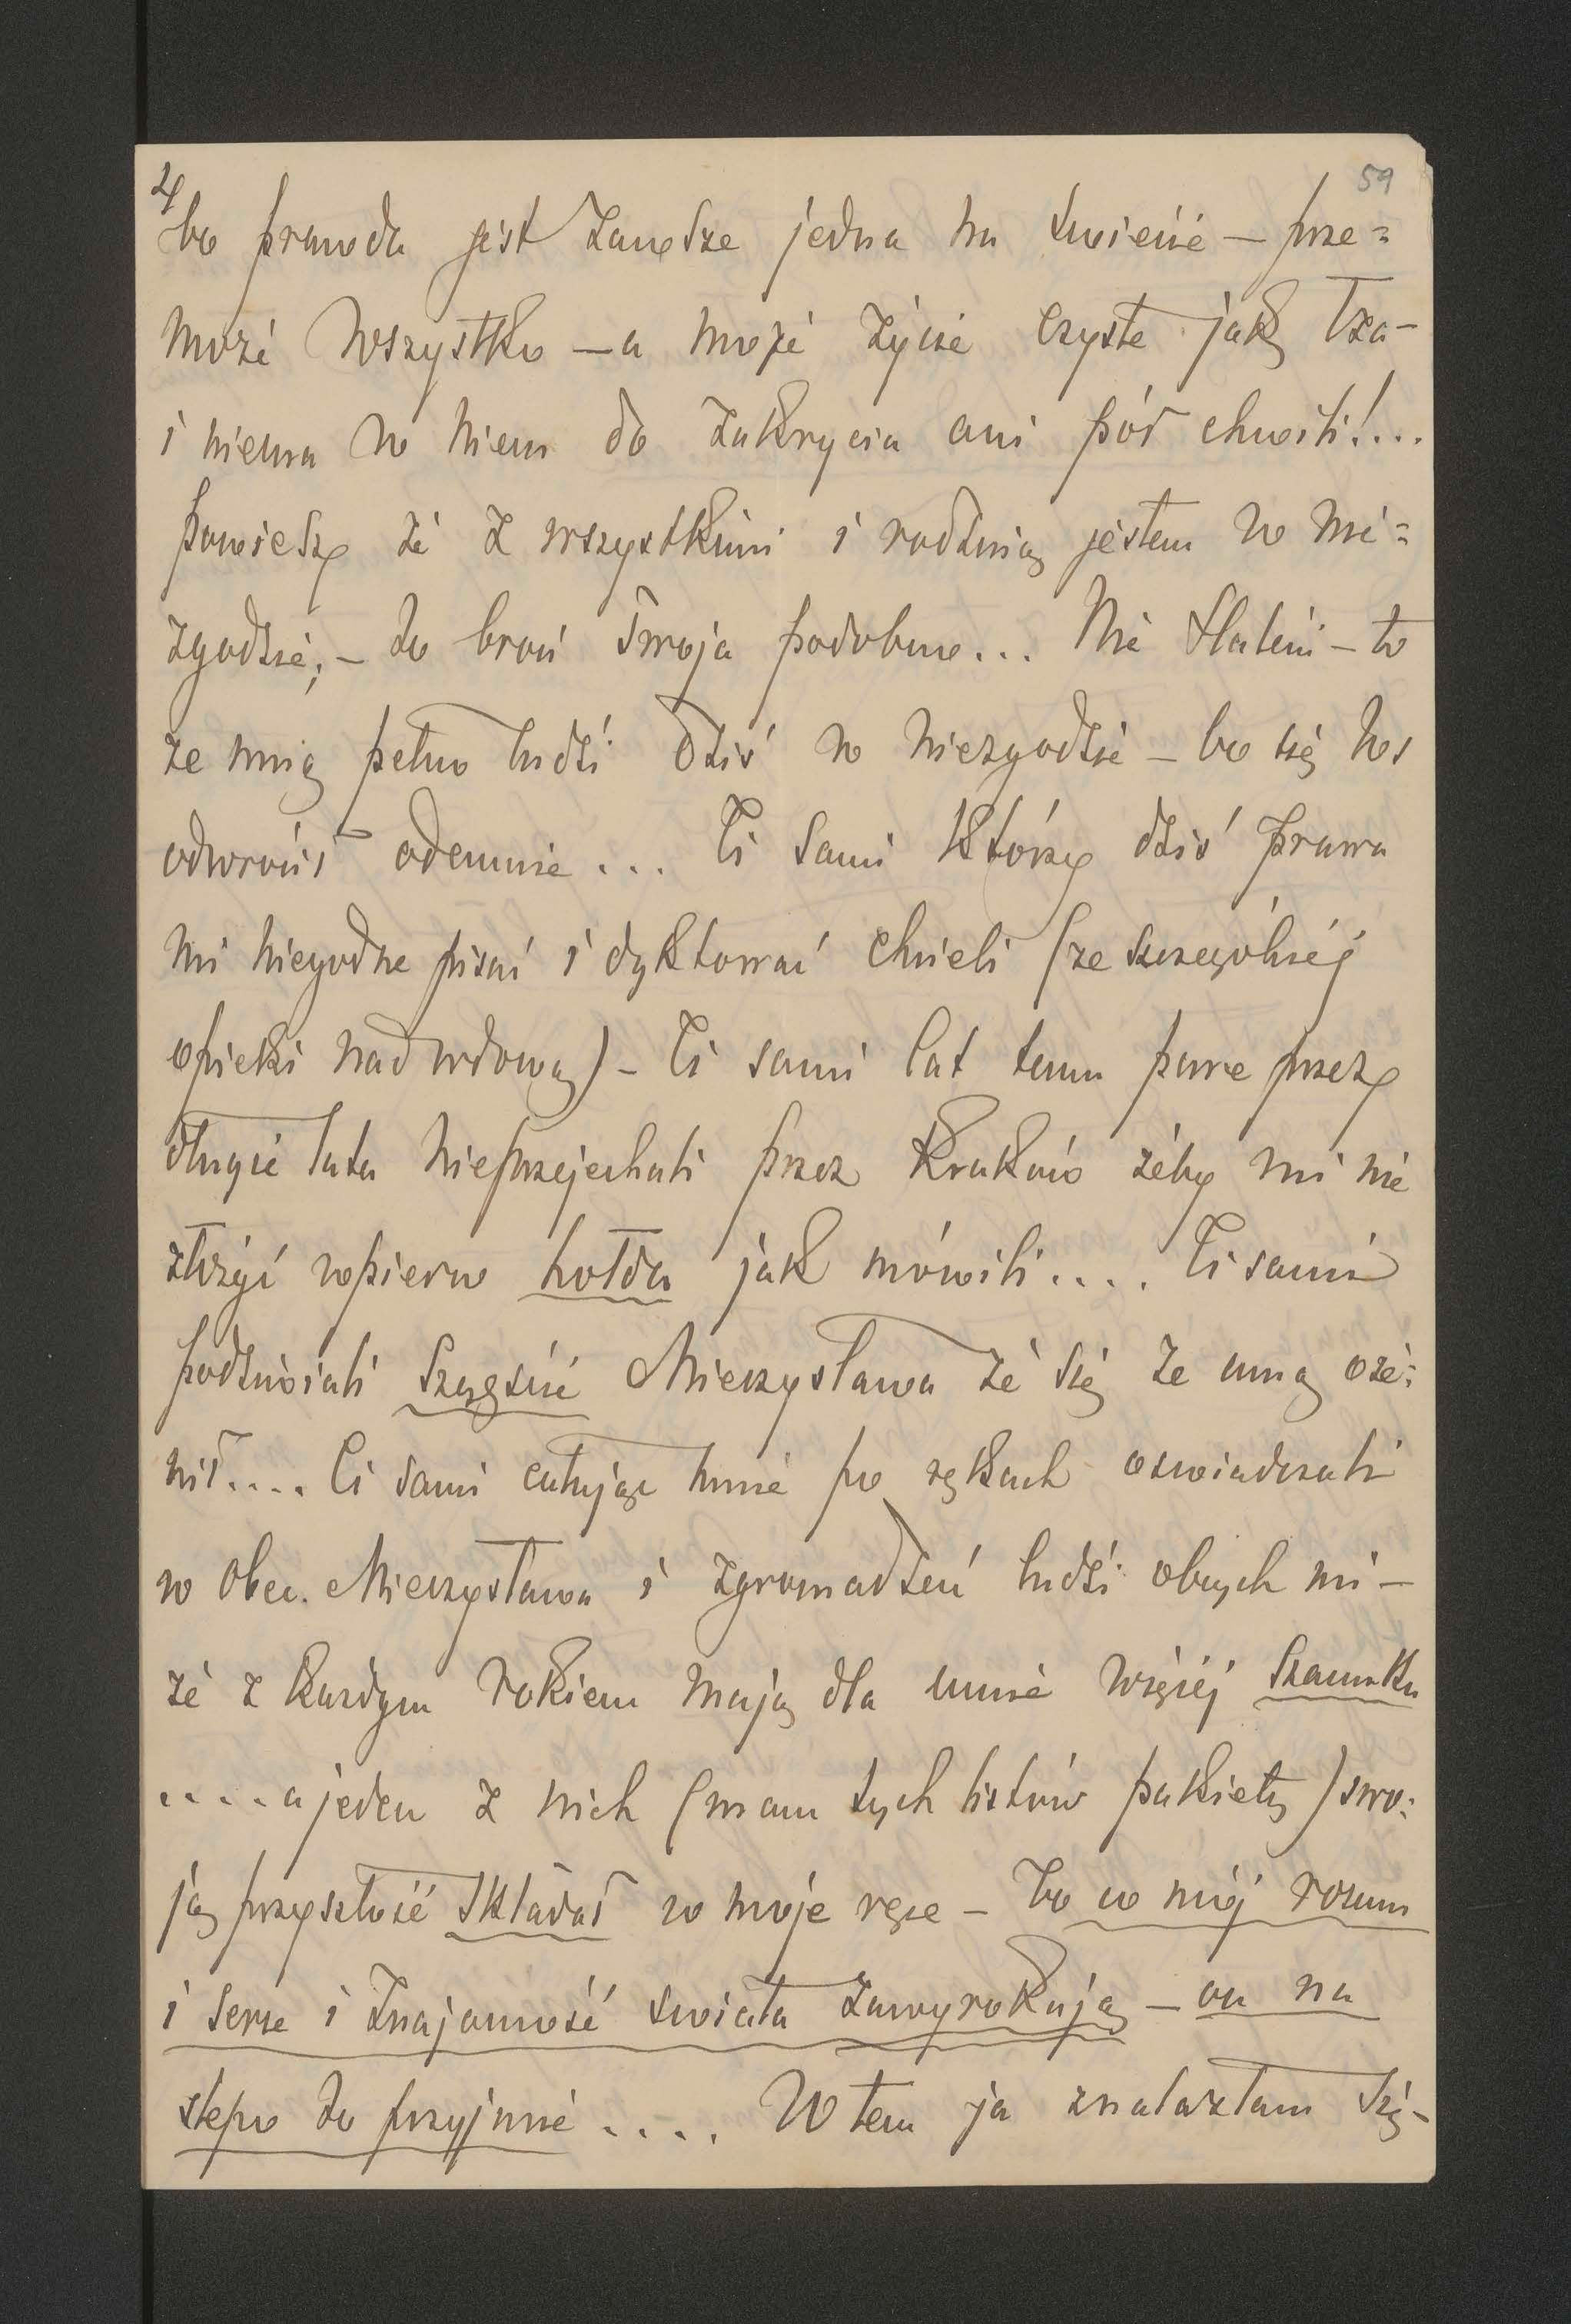 4
59
bo prawda jest zawsze jedna na świecie – prze=
może wszystko – a moje życie czyste jak łza –
i niema w niem do zakrycia ani pół chwili!...
powiedzą że z wszystkimi i rodziną jestem w nie=
zgodzie; – to broń twoja podobno... Nie Stateni – to
ze mną pełno ludzi dziś w niezgodzie – bo się los
odwrócił odemnie... Ci sami którzy dziś prawa
mi niegodne pisać i dyktować chcieli (ze szczególnéj
opieki nad wdową) – Ci sami lat temu parę przez
długie lata nieprzejechali przez Kraków żeby mi nie
złożyć wpierw hołdu jak mówili.... Ci sami
podziwiali szczęście Mieczysława że się ze mną oże=
nił.... Ci sami całując mnie po rękach oświadczali
w obec Mieczysława i zgromadzeń ludzi obcych mi –
że z każdym rokiem mają dla mnie więcéj szacunku
.... a jeden z nich (mam tych listów pakiety) swo=
ją przyszłość składał w moje ręce – to co mój rozum
i serce i znajomość świata zawyrokują – on na
ślepo to przyjmie.... W tem ja znalazłam się –